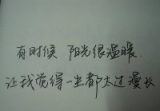 有时候 阳光很温暖
让我觉得一生都太过漫长